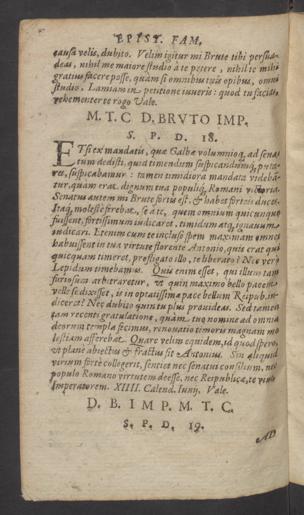 EPIST. FAM.
causa velis, dubito. Velim igitur mi Brute tibi persua-
deas, nihil me maiore studio à te petere, nihil te mihi
gratius facere posse, quàm si omnibus tuis opibus, omni
studio. Lamiam in petitione iuueris: quod ut facias,
vehementer te rogo Vale.
M. T. C D. BRVTO IMP.
S. P. D. 18.
ETsi ex mandatis, quæ Galbæ volumnioq, ad sena-
tum dedisti, quid timendum suspicandumq, puta-
res, suspicabamur: tamen timidiora mandata videbã-
tur, quàm erat dignum tua populiq, Romani victoria.
Senatus autem mi Brute fortis est, & habet fortes duces.
Itaq, molestè ferebat, se à te, quem omnium quicunque
fuissent, fortissimum iudicaret, timidum atq, ignauum
iudicari. Etenim cum te incluso spem maximam omnes
habuissent in tua virtute florente Antonio, quis erat qui
quicquam timeret, profligato illo, te liberato? Nec verò
Lepidum timebamus. Quis enim esset, qui illum tam
furiosum arbitraretur, ut qui in maximo bello pacem
velle se dixisset, is in optatissima pace bellum Reipub. in-
diceret? Nec dubito quin tu plus prouideas. Sed tamen
tam recenti gratulatione, quàm tuo nomine ad omnia
deorum templa fecimus, renouatio timoris magnam mo
lestiam afferebat. Quare velim equidem, id quod spero,
ut planè abiectus & fractus sit Antonius. Sin aliquid
virium fortè collegerit, sentiet nec senatui consilium, nec
populo Romano virtutem deesse, nec Reipublicæ, te viuo
Imperatorem. XIIII. Calend. Iunij. Vale.
D. B. IMP. M. T. C.
S. P. D. 19.
AD